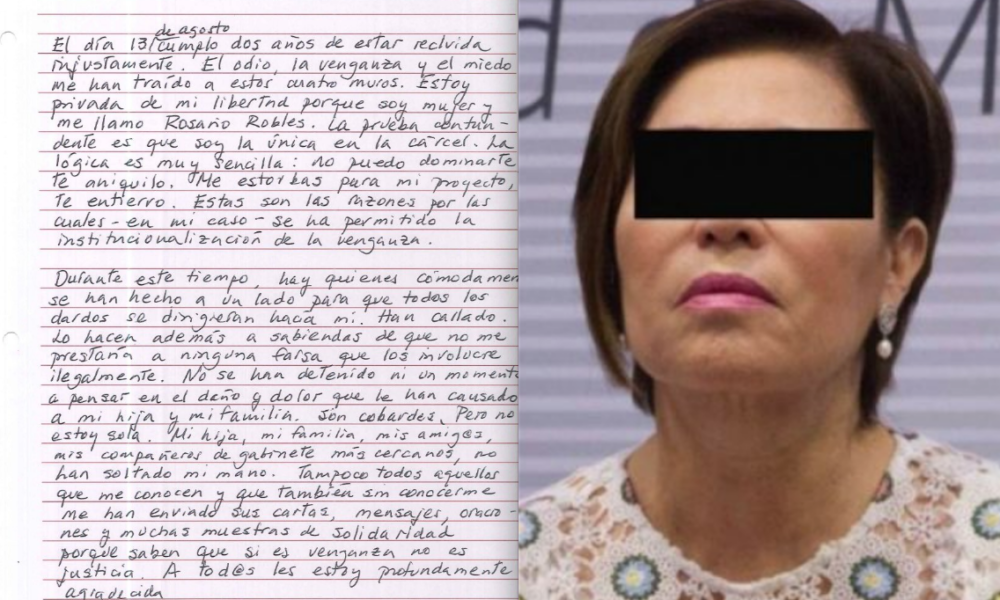 de agosto
El día 13/ cumplo dos años de estar recluida
injustamente. El odio, la venganza y el miedo
me han traído a estos cuatro muros. Estoy
privada de mi libertad porque soy mujer y
me llamo Rosario Robles. La prueba contun-
dente es que soy la única en la cárcel. La
lógica es muy sencilla: no puedo dominarte
te aniquilo. Me estorbas para mi proyecto,
te entierro. Estas son las razones por las
cuales - en mi caso - se ha permitido la
institucionalización de la venganza.
Durante este tiempo, hay quienes cómodamen
se han hecho a un lado para que todos los
dardos se dirigieran hacia mí. Han callado.
Lo hacen además a sabiendas de que no me
prestaría a ninguna farsa que los involucre
ilegalmente. No se han detenido ni un momento
a pensar en el daño y dolor que le han causado
a mi hija y mi familia. Son cobardes. Pero no
estoy sola. Mi hija, mi familia, mis amig@s,
mis compañeros de gabinete más cercanos, no
han soltado mi mano. Tampoco todos aquellos
que me conocen y que también sin conocerme
me han enviado sus cartas, mensajes, oracio-
nes y muchas muestras de solidaridad
porque saben que si es venganza no es
justicia. A tod@s les estoy profundamente
agradecida
d
M